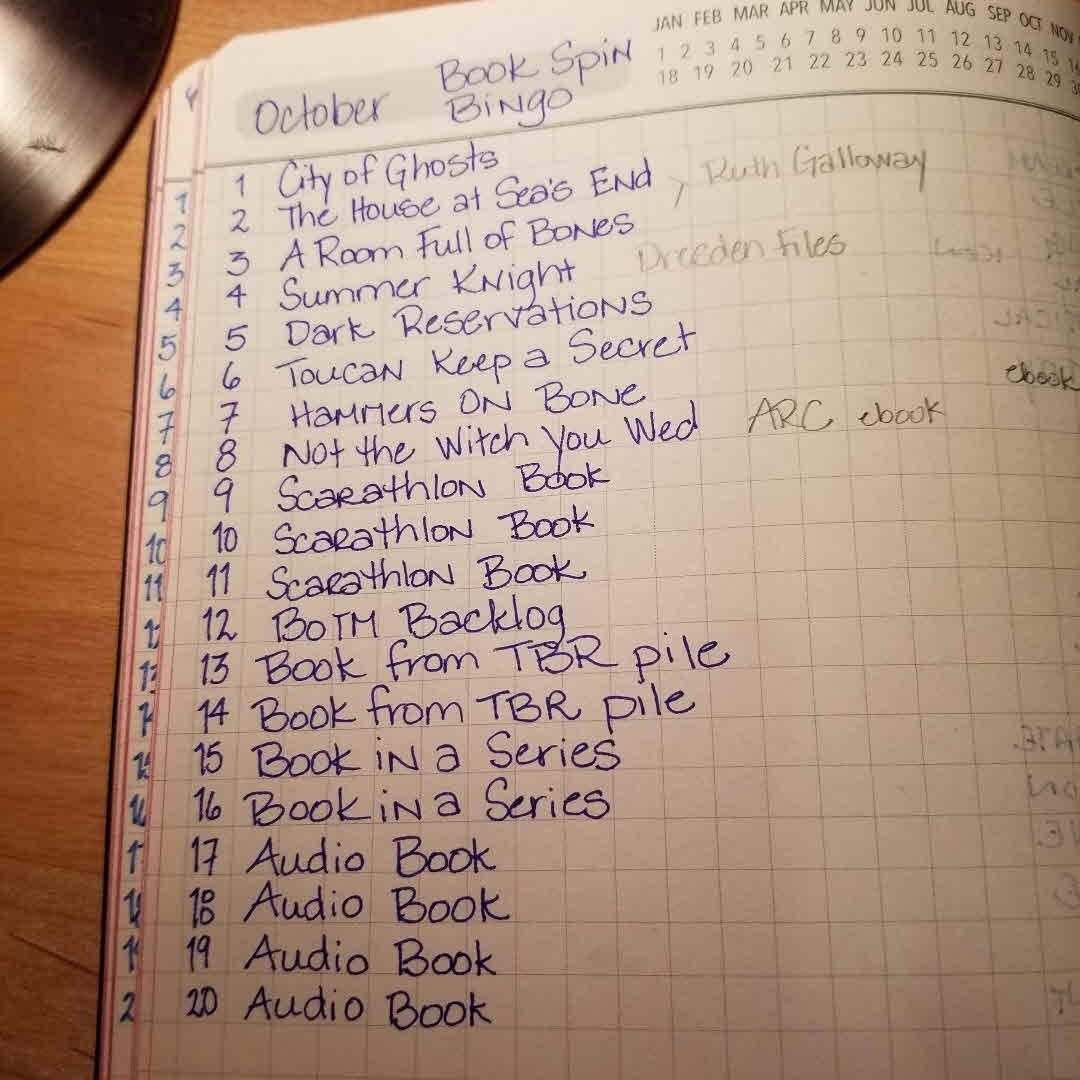 JAN FEB MAR APR MAY JUN JUL AUG SEP OCT NOV
1 2 3 4 5 6 7 8 9 10 11 12 13 14 15
18 19 20 21 22 23 24 25 26 27 28 29
October Book Spin Bingo
1 1 City of Ghosts
2 2 The House at Sea's End } Ruth Galloway
3 3 A Room Full of Bones
4 4 Summer Knight Dresden Files
5 5 Dark Reservations
6 6 Toucan Keep a Secret
7 7 Hammers on Bone ebook
8 8 Not the Witch You Wed ARC ebook
9 9 Scarathlon Book
10 10 Scarathlon Book
11 11 Scarathlon Book
12 BOTM Backlog
13 Book from TBR pile
14 Book from TBR pile
15 Book in a Series
16 Book in a Series
17 Audio Book
18 Audio Book
19 Audio Book
20 Audio Book